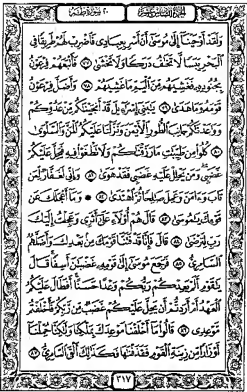 الجزء السادس عشر ٢٠ سورة طه
وَلَقَدْ أَوْحَيْنَا إِلَىٰ مُوسَىٰ أَنْ أَسْرِ بِعِبَادِي فَاضْرِبْ لَهُمْ طَرِيقًا فِي
الْبَحْرِ يَبَسًا لَا تَخَافُ دَرَكًا وَلَا تَخْشَىٰ ٧٧ فَأَتْبَعَهُمْ فِرْعَوْنُ
بِجُنُودِهِ فَغَشِيَهُمْ مِنَ الْيَمِّ مَا غَشِيَهُمْ ٧٨ وَأَضَلَّ فِرْعَوْنُ
قَوْمَهُ وَمَا هَدَىٰ ٧٩ يَٰبَنِي إِسْرَٰٓءِيلَ قَدْ أَنجَيْنَٰكُم مِنْ عَدُوِّكُمْ
وَوَٰعَدْنَٰكُمْ جَانِبَ الطُّورِ الْأَيْمَنَ وَنَزَّلْنَا عَلَيْكُمُ الْمَنَّ وَالسَّلْوَىٰ
٨٠ كُلُوا مِن طَيِّبَٰتِ مَا رَزَقْنَٰكُمْ وَلَا تَطْغَوْا فِيهِ فَيَحِلَّ عَلَيْكُمْ
غَضَبِي وَمَن يَحْلِلْ عَلَيْهِ غَضَبِي فَقَدْ هَوَىٰ ٨١ وَإِنِّي لَغَفَّارٌ لِمَن
تَابَ وَءَامَنَ وَعَمِلَ صَٰلِحًا ثُمَّ اهْتَدَىٰ ٨٢ وَمَا أَعْجَلَكَ عَن
قَوْمِكَ يَٰمُوسَىٰ ٨٣ قَالَ هُمْ أُولَاءِ عَلَىٰ أَثَرِي وَعَجِلْتُ إِلَيْكَ
رَبِّ لِتَرْضَىٰ ٨٤ قَالَ فَإِنَّا قَدْ فَتَنَّا قَوْمَكَ مِن بَعْدِكَ وَأَضَلَّهُمُ
السَّامِرِيُّ ٨٥ فَرَجَعَ مُوسَىٰ إِلَىٰ قَوْمِهِ غَضْبَٰنَ أَسِفًا قَالَ
يَٰقَوْمِ أَلَمْ يَعِدْكُمْ رَبُّكُمْ وَعْدًا حَسَنًا أَفَطَالَ عَلَيْكُمُ
الْعَهْدُ أَمْ أَرَدتُّمْ أَن يَحِلَّ عَلَيْكُمْ غَضَبٌ مِن رَبِّكُمْ فَأَخْلَفْتُم
مَوْعِدِي ٨٦ قَالُوا مَا أَخْلَفْنَا مَوْعِدَكَ بِمَلْكِنَا وَلَٰكِنَّا حُمِّلْنَا
أَوْزَارًا مِن زِينَةِ الْقَوْمِ فَقَذَفْنَٰهَا فَكَذَٰلِكَ أَلْقَى السَّامِرِيُّ ٨٧
٣١٧